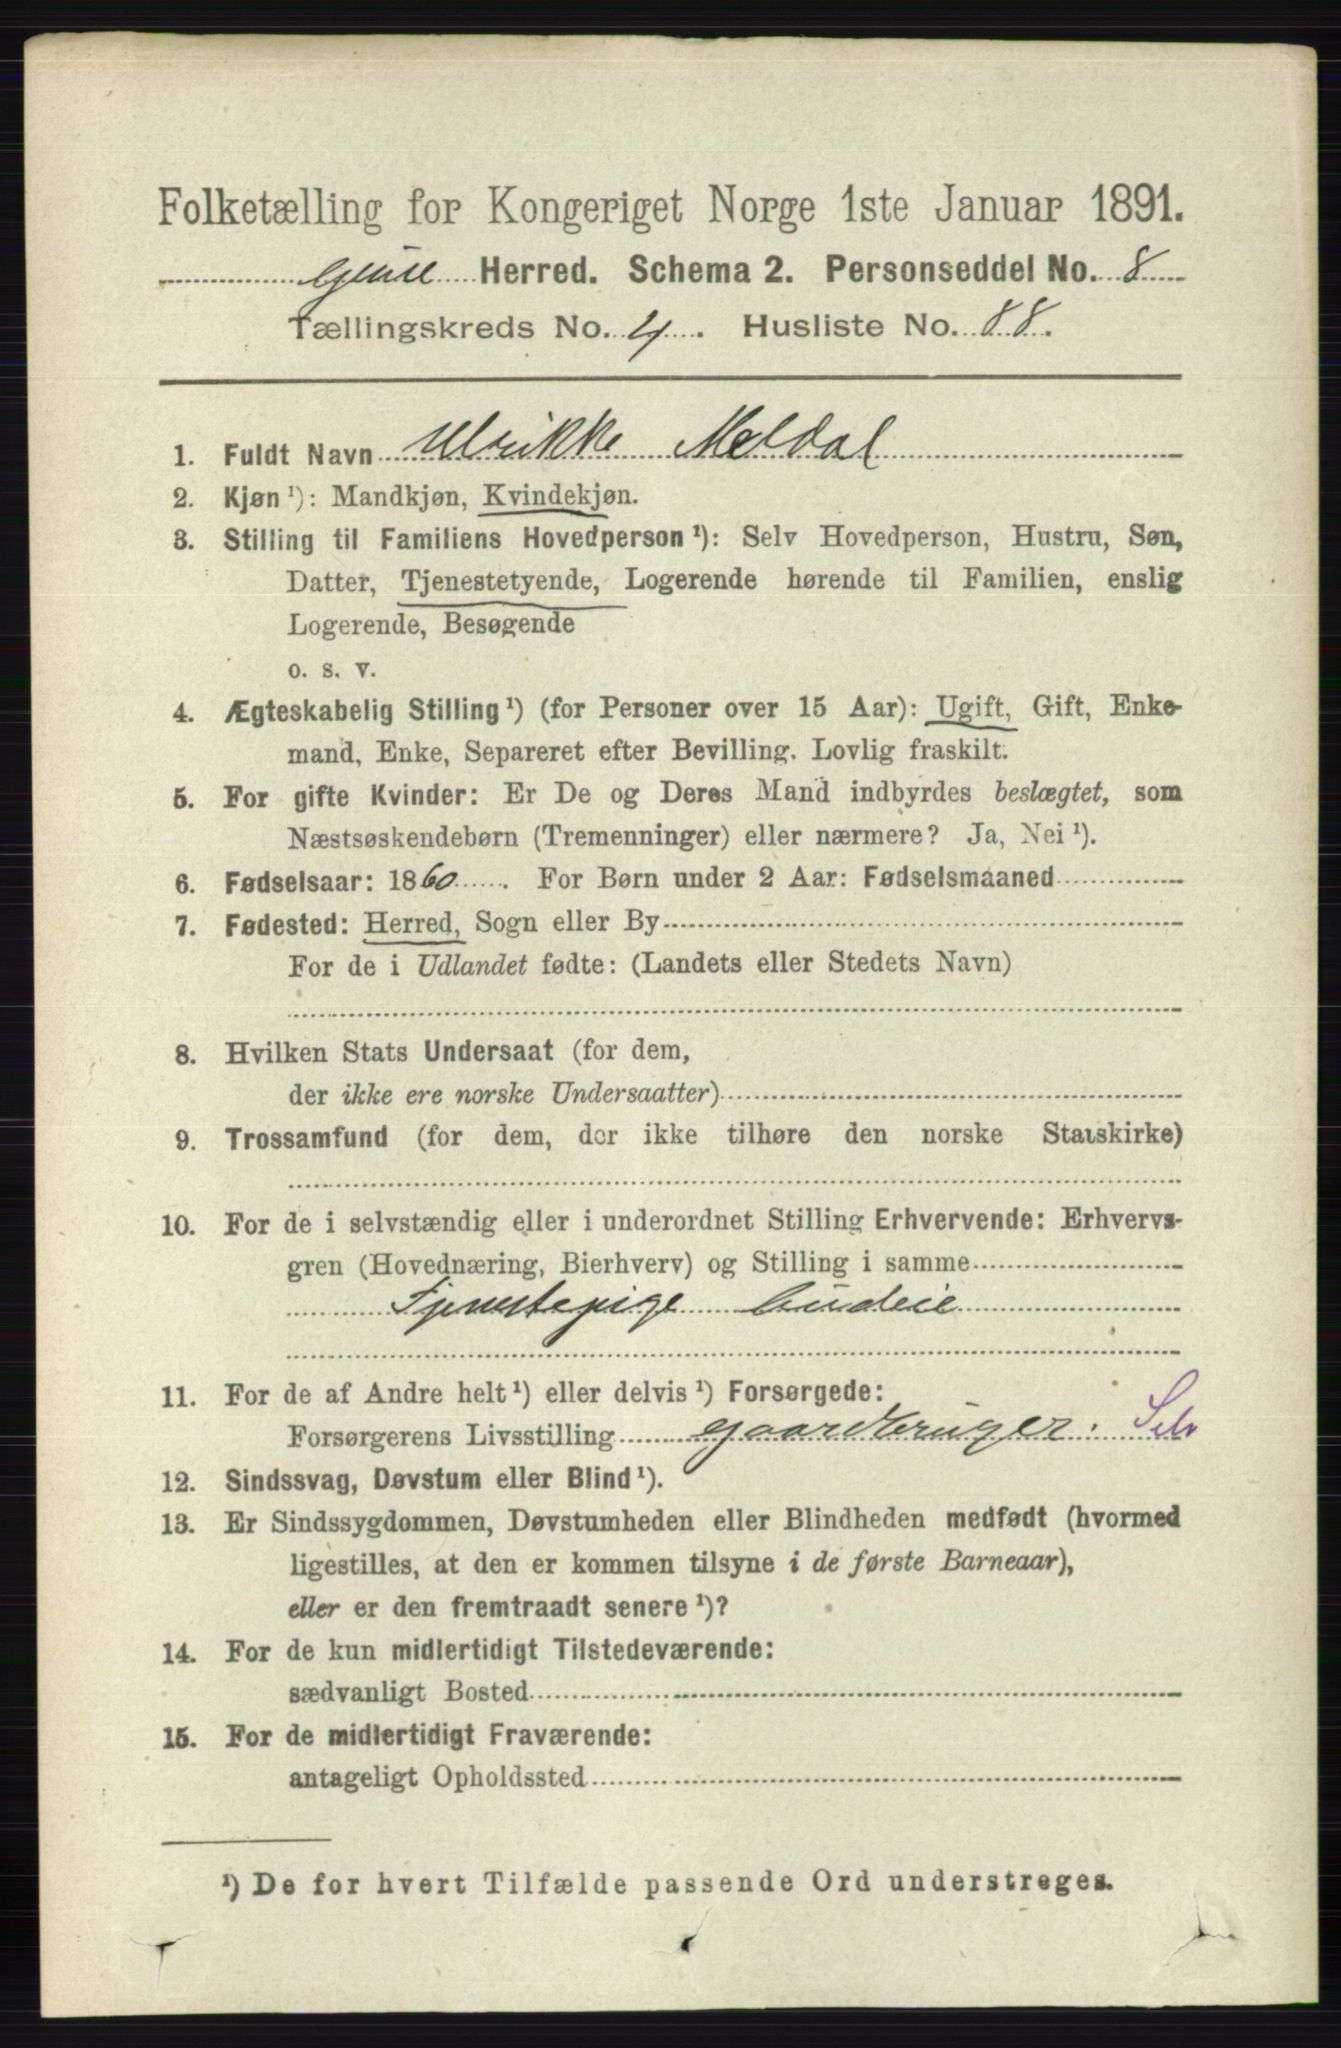 Folketælling for Kongeriget Norge 1ste Januar 1891.
Herred. Schema 2. Personseddel No. 8
Tællingskreds No. 4. Husliste No. 88.
1. Fuldt Navn Ulrikke Meldal
2. Kjøn ¹): Mandkjøn, Kvindekjøn.
3. Stilling til Familiens Hovedperson ¹): Selv Hovedperson, Hustru, Søn,
Datter, Tjenestetyende, Logerende hørende til Familien, enslig
Logerende, Besøgende
o. s. v.
4. Ægteskabelig Stilling ¹) (for Personer over 15 Aar): Ugift, Gift, Enke-
mand, Enke, Separeret efter Bevilling. Lovlig fraskilt.
5. For gifte Kvinder: Er De og Deres Mand indbyrdes beslægtet, som
Næstsøskendebørn (Tremenninger) eller nærmere? Ja, Nei ¹).
6. Fødselsaar: 1860. For Børn under 2 Aar: Fødselsmaaned
7. Fødested: Herred, Sogn eller By
For de i Udlandet fødte: (Landets eller Stedets Navn)
8. Hvilken Stats Undersaat (for dem,
der ikke ere norske Undersaatter)
9. Trossamfund (for dem, der ikke tilhøre den norske Statskirke)
10. For de i selvstændig eller i underordnet Stilling Erhvervende: Erhvervs-
gren (Hovednæring, Bierhverv) og Stilling i samme
Tjenestepige budeie
11. For de af Andre helt ¹) eller delvis ¹) Forsørgede:
Forsørgerens Livsstilling gaardbruger. Selv
12. Sindssvag, Døvstum eller Blind ¹).
13. Er Sindssygdommen, Døvstumheden eller Blindheden medfødt (hvormed
ligestilles, at den er kommen tilsyne i de første Barneaar),
eller er den fremtraadt senere ¹)?
14. For de kun midlertidigt Tilstedeværende:
sædvanligt Bosted
15. For de midlertidigt Fraværende:
antageligt Opholdssted
¹) De for hvert Tilfælde passende Ord understreges.